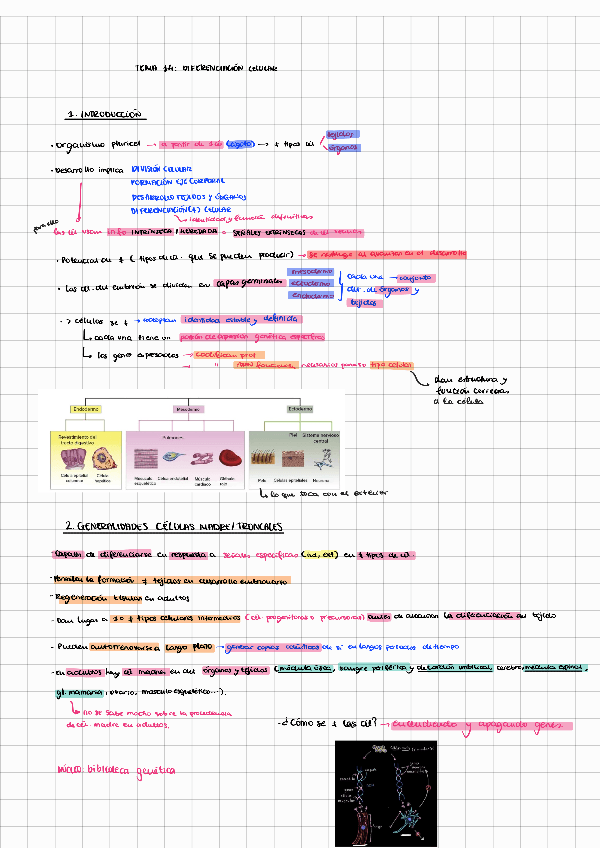 TEMA 14: DIFERENCIACIÓN CELULAR
1. INTRODUCCIÓN
· Organismo pluricel → a partir de 1 cél (cigoto) → ≠ tipos cél
tejidos
órganos
· Desarrollo implica DIVISIÓN CELULAR
FORMACIÓN EJE CORPORAL
DESARROLLO TEJIDOS Y ÓRGANOS
DIFERENCIACIÓN(≠) CELULAR
↳ identidad y función definitivas
para ello
las cél usan info INTRÍNSECA / HEREDADA o SEÑALES EXTRÍNSECAS
· Potencial de ≠ (tipos de cél. que se pueden producir) → se restringe al avanzar en el desarrollo
· Las cél. del embrión se dividen en capas germinales
mesodermo
ectodermo
endodermo
cada una → conjunto
de órganos y
tejidos
→ células se ≠ → adoptan identidad estable y definida
↳ cada una tiene un patrón de expresión genética específico
↳ los genes expresados → codifican prot
→ " funciones necesarias para su tipo celular
dan estructura y
función correctas
a la célula
Endodermo Mesodermo Ectodermo
Revestimiento del tracto digestivo Pulmones Piel Sistema nervioso central
Célula epitelial Célula hepática Músculo esquelético Célula endotelial Músculo cardíaco Glóbulo rojo Pelo Células epiteliales Neurona
↳ lo que toca con el exterior
2. GENERALIDADES CÉLULAS MADRE/TRONCALES
· Capaces de diferenciarse en respuesta a señales específicas (int, ext) en ≠ tipos de cél.
· Permiten la formación ≠ tejidos en desarrollo embrionario
· Regeneración tisular en adultos
· Dan lugar a ≠ tipos celulares intermedios (cél. progenitoras o precursoras) antes de alcanzar la diferenciación en tejido
· Pueden autorrenovarse a largo plazo → generar copias idénticas de sí en largos periodos de tiempo
· En adultos hay cél madre en órganos y tejidos (médula ósea, sangre periférica y de cordón umbilical, cerebro, médula espinal,
gl. mamaria, ovario, músculo esquelético...).
↳ no se sabe mucho sobre la procedencia
de cél. madre en adultos.
- ¿Cómo se ≠ las cél? → encendiendo y apagando genes.
núcleo: biblioteca genética